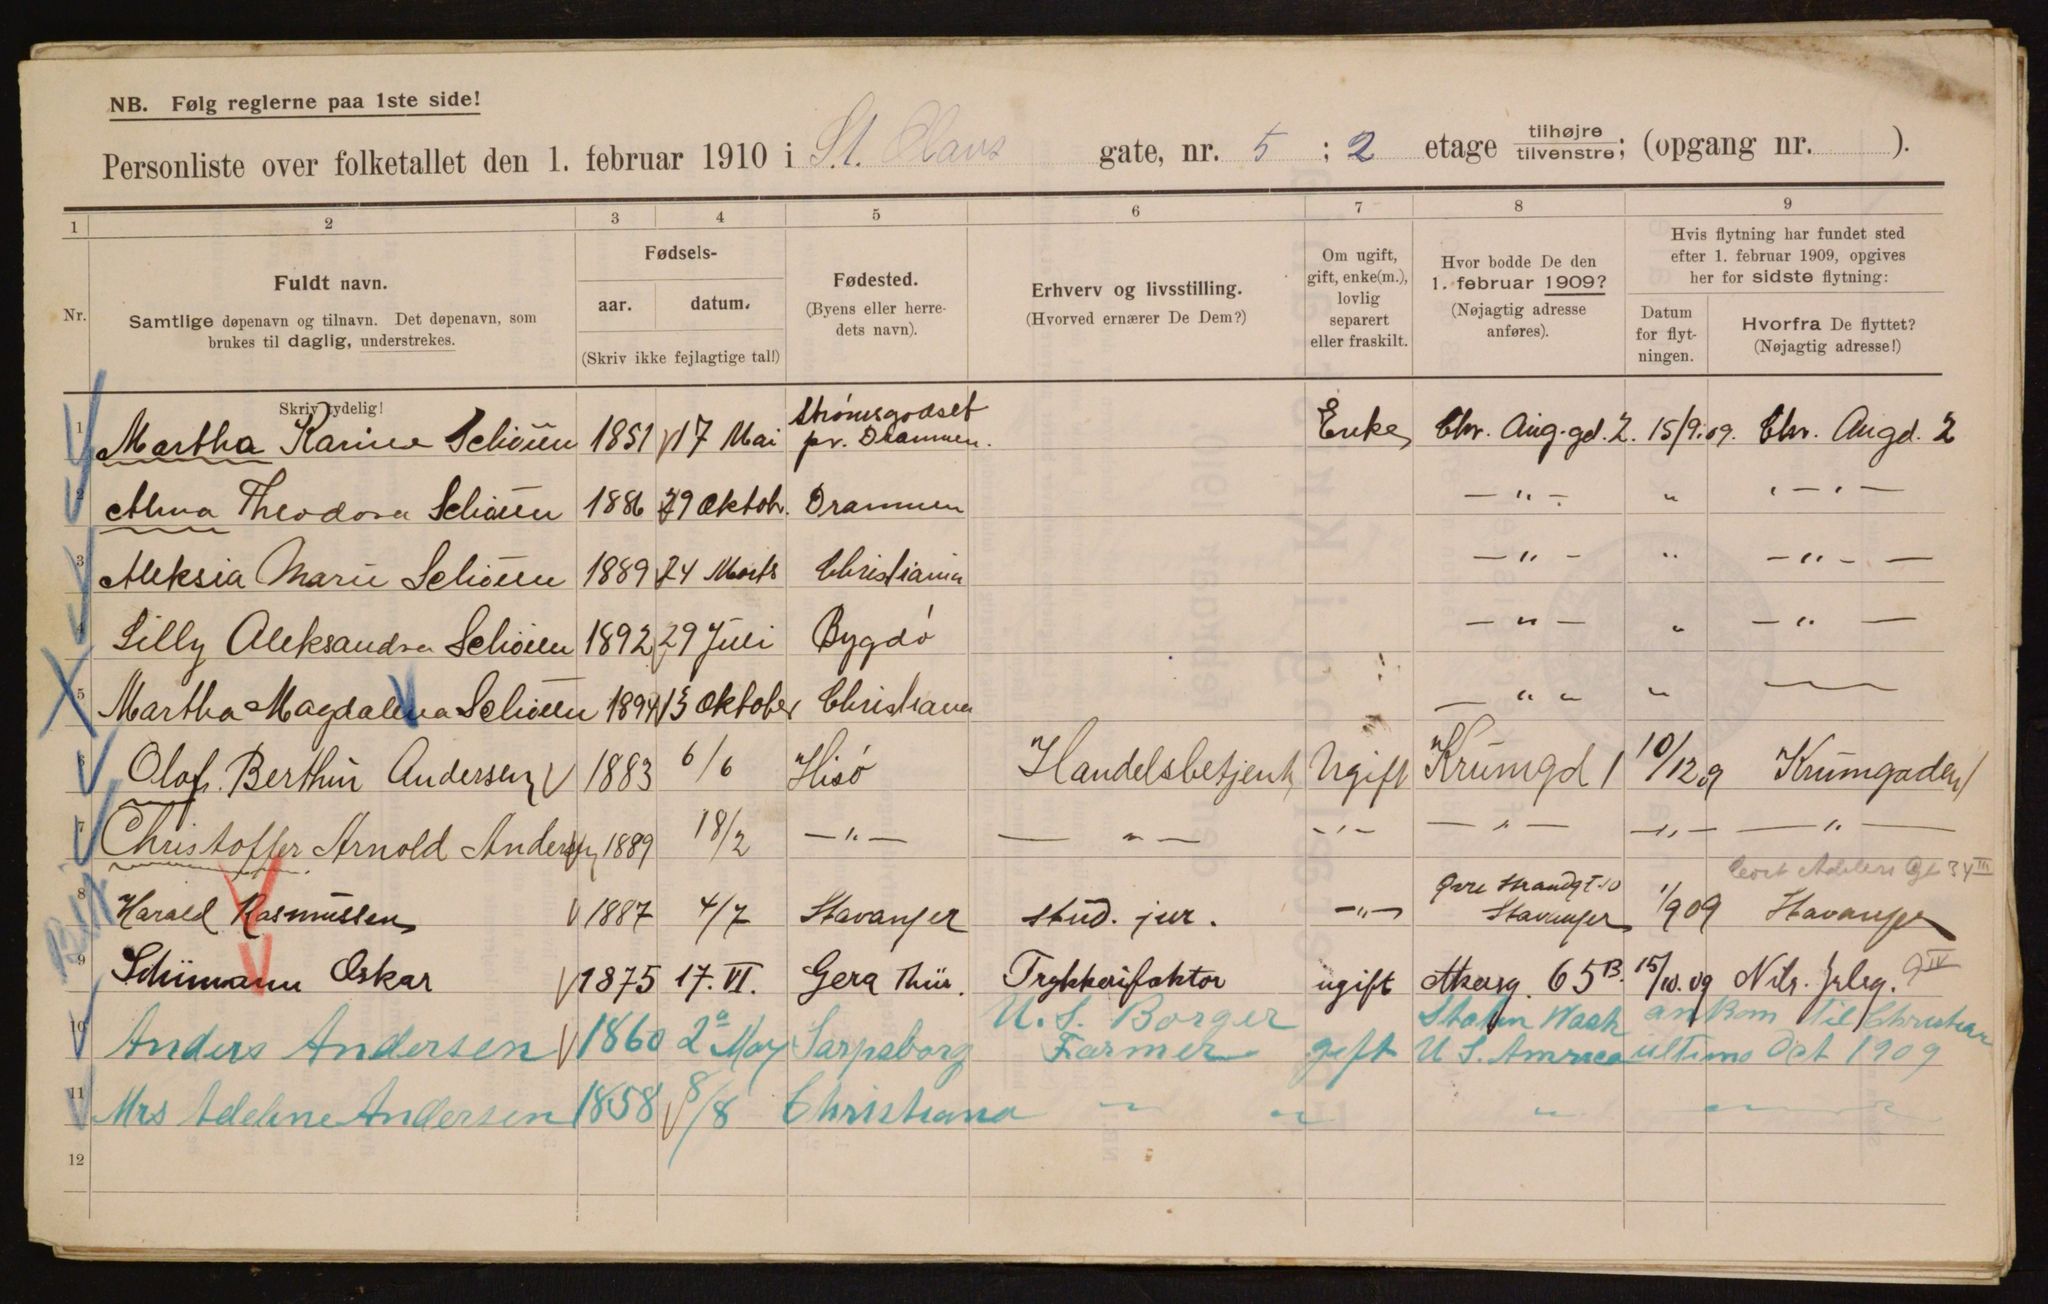 NB. Følg reglerne paa 1ste side!
Personliste over folketallet den 1. februar 1910 i St. Olavs gate, nr. 5 ; 2 etage tilhøjre tilvenstre; (opgang nr. ).
1 2 3 4 5 6 7 8 9
Nr.
Fuldt navn.
Samtlige døpenavn og tilnavn. Det døpenavn, som
brukes til daglig, understrekes.
Skriv tydelig!
Fødsels-
aar. datum.
(Skriv ikke fejlagtige tal!)
Fødested.
(Byens eller herre-
dets navn).
Erhverv og livsstilling.
(Hvorved ernærer De Dem?)
Om ugift,
gift, enke(m.),
lovlig
separert
eller fraskilt.
Hvor bodde De den
1. februar 1909?
(Nøjagtig adresse
anføres).
Hvis flytning har fundet sted
efter 1. februar 1909, opgives
her for sidste flytning:
Datum
for flyt-
ningen.
Hvorfra De flyttet?
(Nøjagtig adresse!)
1 Martha Karine Schöien 1851 17 Mai Strömsgodset pr. Drammen. Enke Chr. Aug. gd. 2. 15/9.09. Chr. Augd. 2
2 Alma Theodora Schöien 1886 29 Oktob. Drammen — " — " — " —
3 Aleksia Marie Schöien 1889 24 Marts Christiania — " — " — " — —
4 Lilly Aleksandra Schöien 1892 29 Juli Bygdö — " — " — " —
5 Martha Magdalena Schöien 1894 13 Oktober Christiania — " " "
6 Olaf Berthin Andersen 1883 6/6 Hisö Handelsbetjent Ugift Krumgd 1 10/12 9 Krumgaden 1
7 Christoffer Arnold Andersen 1889 18/2 — " — — " — - " - — " — — " — — " —
Cort Adelers Gt 34 III
8 Harald Rasmussen 1887 4/7 Stavanger stud. jur. — " — Øvre Strandgt 10 Stavanger 1/9 09 Stavanger
9 Schümann Oskar 1875 17. VI. Gera Thür. Trykkerifaktor ugift Akersg. 65 B. 15/10.09 Nils. Juelsg. 9 IV
10 Anders Andersen 1860 2a May Sarpsborg U. S. Borger Farmer gift Wash U S. America ankom til Christiania ultimo Oct 1909
11 Mrs Adeline Andersen 1858 8/8 Christiana " " "
12